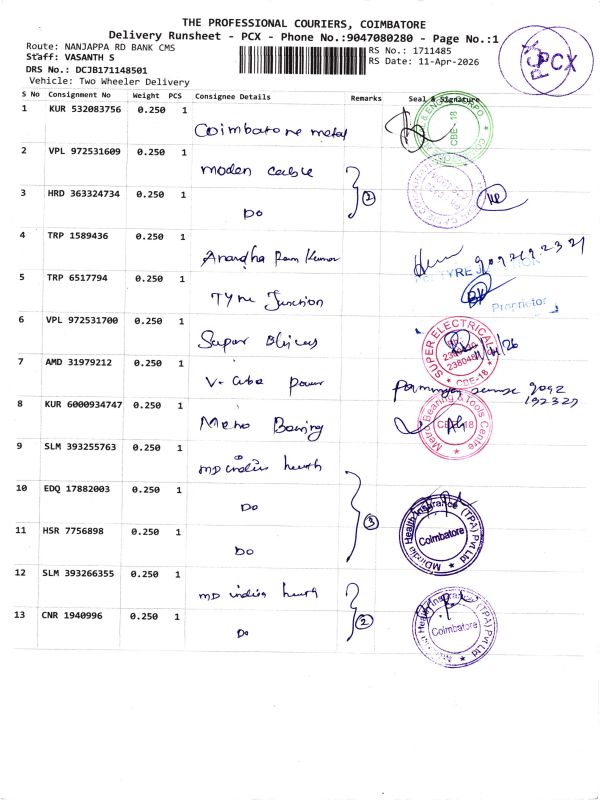 THE PROFESSIONAL COURIERS, COIMBATORE
Delivery Runsheet - PCX - Phone No.:9047080280 - Page No.:1
Route: NANJAPPA RD BANK CMS
RS No.: 1711485
Staff: VASANTH S
RS Date: 11-Apr-2026
DRS No.: DCJB171148501
Vehicle: Two Wheeler Delivery
PCX
PCX
S No Consignment No Weight PCS Consignee Details Remarks Seal & Signature
1 KUR 532083756 0.250 1 Coimbatore metal
CBE-18
2 VPL 972531609 0.250 1 moden cable
2
3 HRD 363324734 0.250 1 Do
4 TRP 1589436 0.250 1 Anandha Ram Kumar
5 TRP 6517794 0.250 1 Tyre Junction
TYRE JUNCTION
Proprietor
6 VPL 972531700 0.250 1 Super
SUPER ELECTRICALS
CBE-18
7 AMD 31979212 0.250 1 power
8 KUR 6000934747 0.250 1 Metro Bearing
Metro Bearing & Tools Centre
CBE-18
9 SLM 393255763 0.250 1 MD india
10 EDQ 17882003 0.250 1 Do
3
MDIndia Health Insurance (TPA) Pvt Ltd
Coimbatore
11 HSR 7756898 0.250 1 Do
12 SLM 393266355 0.250 1 MD india
2
13 CNR 1940996 0.250 1 Do
MDIndia Health Insurance (TPA) Pvt Ltd
Coimbatore